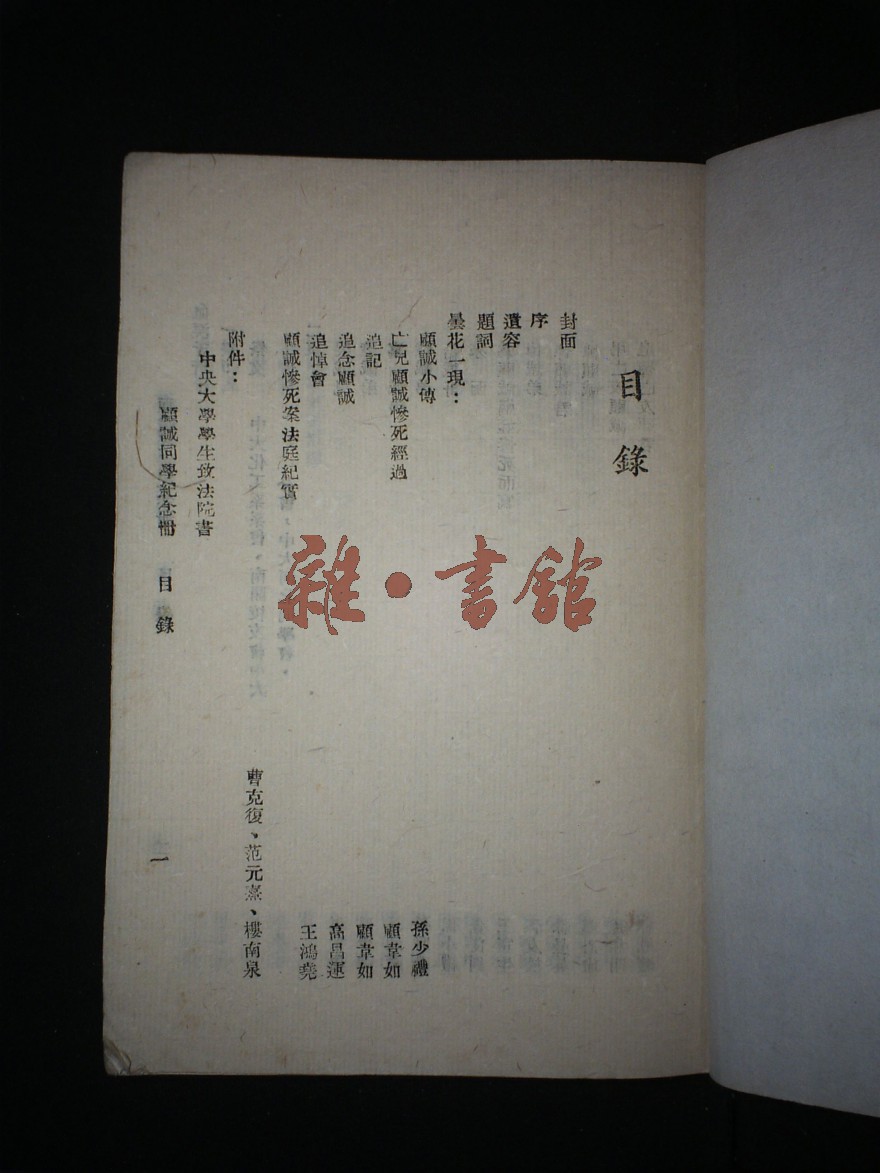 目錄
封面
序
遺容
題詞
曇花一現：
顧誠小傳
孫少禮
亡兒顧誠慘死經過
顧韋如
追記
顧韋如
追念顧誠
高昌運
追悼會
王鴻堯
顧誠慘死案法庭紀實
曹克復、范元熹、樓南泉
附件：
中央大學學生致法院書
顧誠同學紀念冊 目錄
一
雜·書館